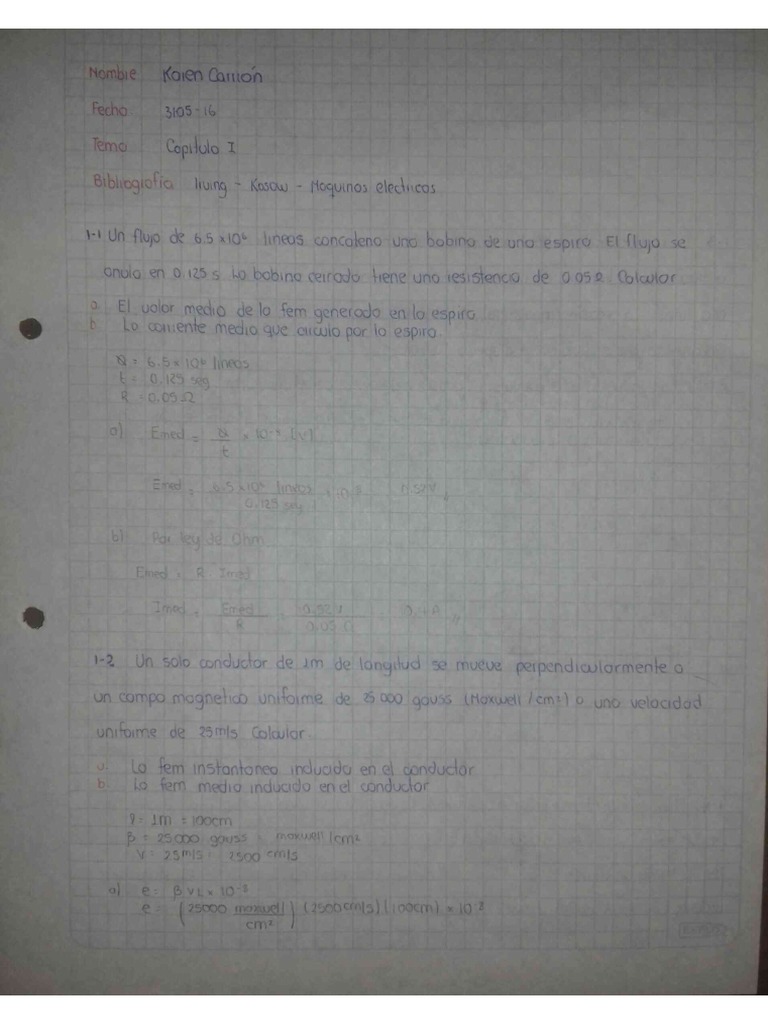 Nombre Karen Carrión
Fecha 3105-16
Tema Capitulo I
Bibliografia Irving - Kosow - Maquinas electricas
1-1 Un flujo de 6.5 x 10⁶ lineas concatena una bobina de una espira El flujo se
anula en 0.125 s La bobina cerrada tiene una resistencia de 0.05Ω Calcular
a. El valor medio de la fem generada en la espira
b. La corriente media que circula por la espira.
= 6.5 x 10⁶ lineas
t = 0.125 seg
R = 0.05Ω
a) Emed = x 10⁻⁸ (v)
t
Emed = 6.5 x 10⁶ lineas x 10⁻⁸ 0.52V
0.125 seg
b) Por ley de Ohm
Emed = R . Imed
Imed = Emed = 0.52 V
R 0.05 Ω
1-2 Un solo conductor de 1m de longitud se mueve perpendicularmente a
un campo magnetico uniforme de 25000 gauss (Maxwell/cm²) a una velocidad
uniforme de 25m/s Calcular
a. La fem instantanea inducida en el conductor
b. La fem media inducida en el conductor
l = 1m = 100cm
β = 25000 gauss maxwell/cm²
V = 25m/s = 2500 cm/s
a) e = β v L x 10⁻⁸
e = (25000 maxwell) (2500cm/s) (100cm) x 10⁻⁸
cm²